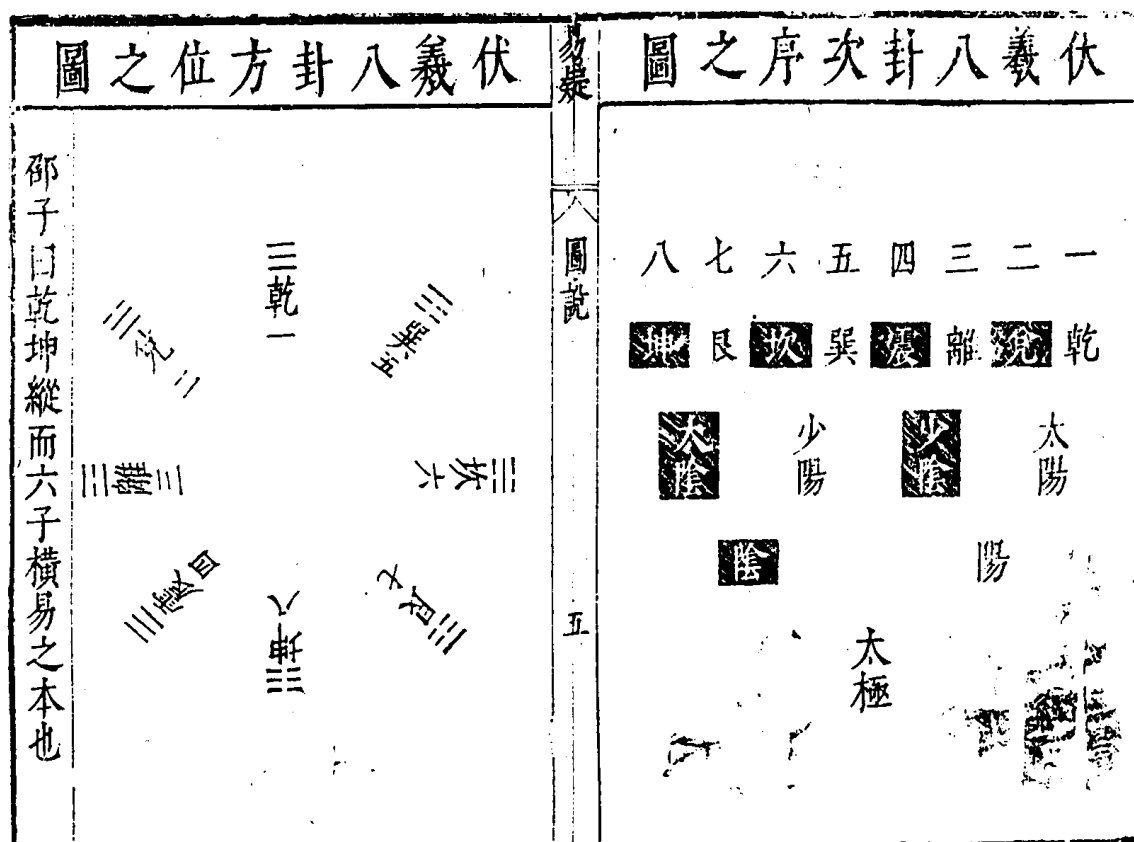 伏羲八卦次序之圖
一 二 三 四 五 六 七 八
乾 兌 離 震 巽 坎 艮 坤
太陽 少陰 少陽 太陰
陽 陰
太極
易疑
圖說
五
伏羲八卦方位之圖
乾一
兌二
離三
震四
巽五
坎六
艮七
坤八
邵子曰乾坤縱而六子橫易之本也